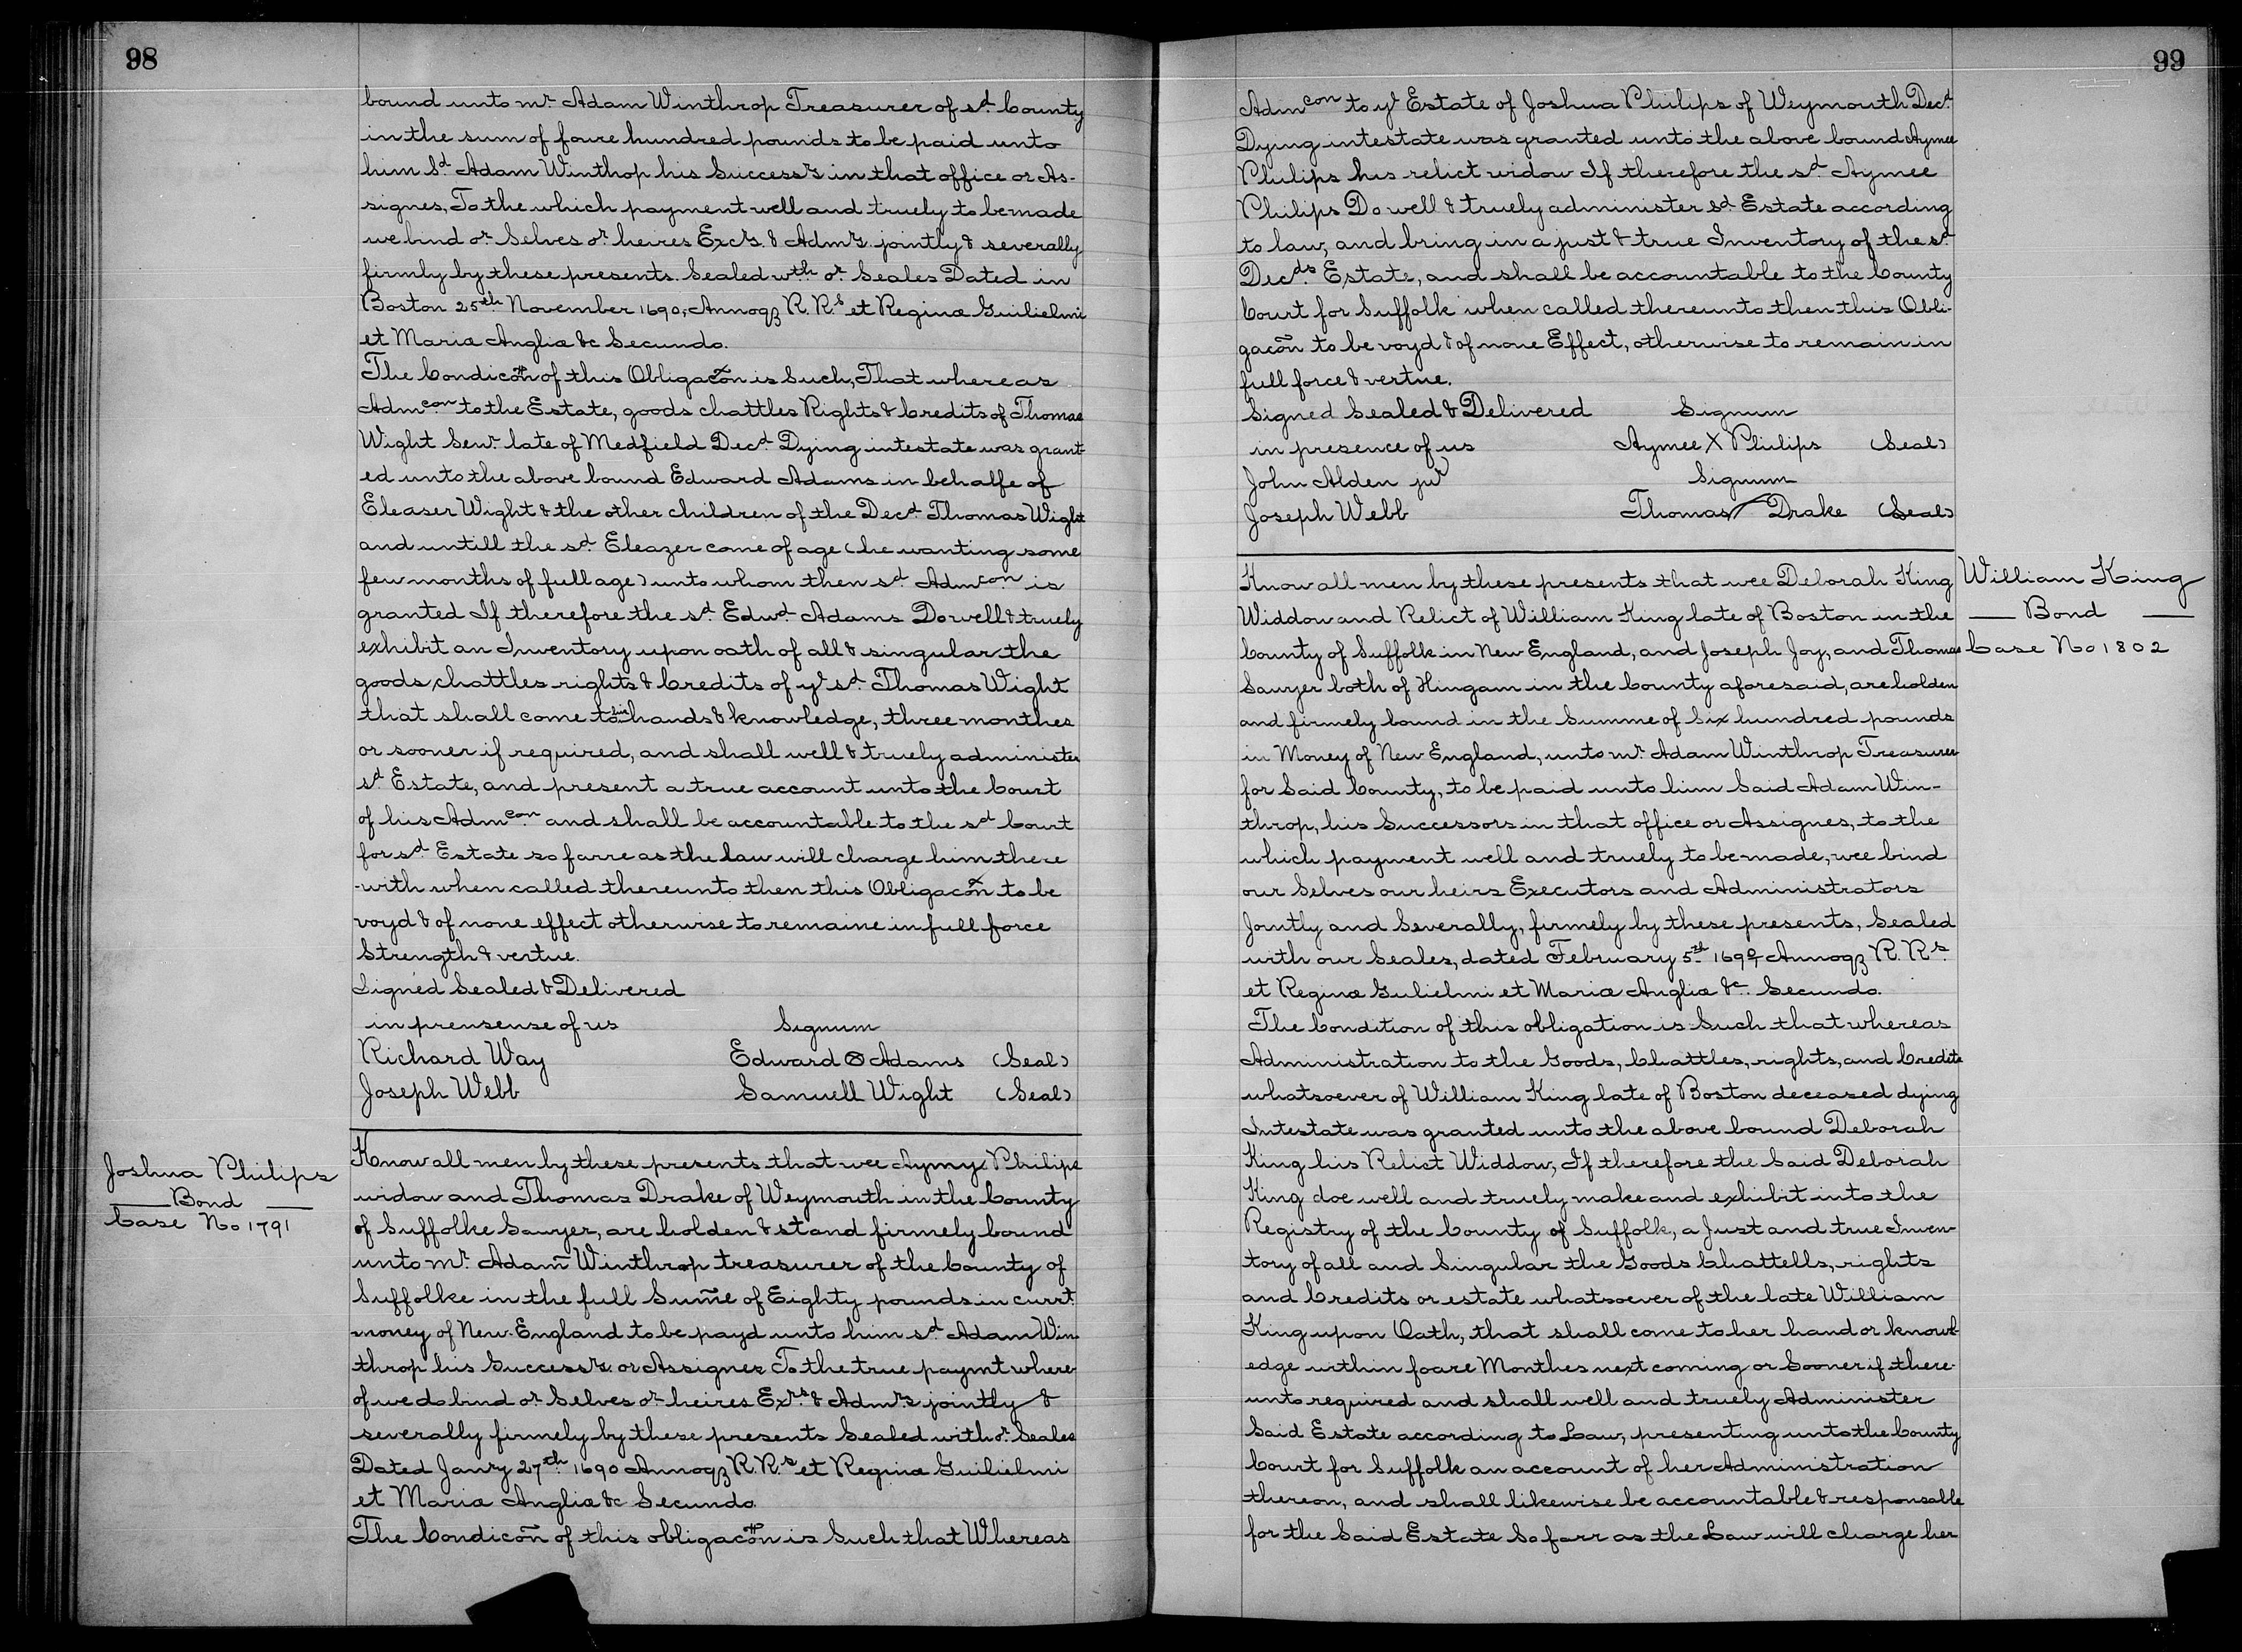 98
bound unto mr. Adam Winthrop Treasurer of sd. County
in the sum of foure hundred pounds to be paid unto
him Sd Adam Winthop his Successrs in that office or As-
signes, To the which payment well and truely to be made
we bind or. Selves or. heires Excrs. & Admrs. jointly & severally
firmly by these presents. Sealed wth. or. Seales Dated in
Boston 25th. November 1690, Annoqz R. Rs et Reginæ Guilielmi
et Mariæ Angliæ &c Secundo.
The Condicon of this Obligacon is Such, That whereas
Admcon to the Estate, goods chattles Rights & Credits of Thomas
Wight Senr. late of Medfield Decd. Dying intestate was grant-
ed unto the above bound Edward Adams in behalfe of
Eleaser Wight & the other children of the Decd. Thomas Wight
and untill the sd. Eleazer come of age (he wanting some
few months of full age) unto whom then sd. Admcon is
granted If therefore the sd. Edwd. Adams Do well & truely
exhibit an Inventory upon oath of all & singular the
goods, chattles rights & Credits of ye sd. Thomas Wight
that shall come to his hands & knowledge, three monthes
or sooner if required, and shall well & truely administer
sd. Estate, and present a true account unto the Court
of his Admcon. and shall be accountable to the sd Court
for sd. Estate so farre as the law will charge him there
-with when called thereunto then this Obligacon to be
voyd & of none effect otherwise to remaine in full force
Strength & vertue.
Signed Sealed & Delivered
in prensense of us Signum
Richard Way Edward ⊗ Adams (Seal)
Joseph Webb Samuell Wight (Seal)
Joshua Philips
Bond
Case No 1791
Know all men by these presents that wee Aymy Philips
widow and Thomas Drake of Weymouth in the County
of Suffolke Sawyer, are holden & stand firmely bound
unto mr. Adam Winthrop treasurer of the County of
Suffolke in the full Sum̃e of Eighty pounds in currt.
money of New-England to be payd unto him sd. Adam Win-
throp his Successrs. or Assignes To the true paymt where-
of we do bind or. Selves or. heires Exrs. & Admrs. jointly &
severally firmely by these presents Sealed with or. Seales
Dated Janry 27th. 1690 Annoqz R. Rs. et Reginæ Guilielmi
et Mariæ Angliæ &c Secundo.
The Condicon of this obligacon is Such that Whereas
99
Admcon to ye Estate of Joshua Philips of Weymouth Decd.
Dying intestate was granted unto the above bound Aymee
Philips his relict widow If therefore the sd. Aymee
Philips Do well & truely administer sd. Estate according
to law, and bring in a just & true Inventory of the sd.
Decds. Estate, and shall be accountable to the County
Court for Suffolk when called thereunto then this Obli-
gacon to be voyd & of none Effect, otherwise to remain in
full force & vertue.
Signed Sealed & Delivered Signum
in presence of us Aymee X Philips (Seal)
John Alden jur Signum
Joseph Webb Thomas Drake (Seal)
William King
Bond
Case No 1802
Know all men by these presents that wee Deborah King
Widdow and Relict of William King late of Boston in the
County of Suffolk in New England, and Joseph Joy, and Thomas
Sawyer both of Hingam in the County aforesaid, are holden
and firmely bound in the Summe of Six hundred pounds
in Money of New England, unto mr. Adam Winthrop Treasurer
for Said County, to be paid unto him Said Adam Win-
throp, his Successors in that office or Assignes, to the
which payment well and truely to be made, wee bind
our Selves our heirs Executors and Administrators
Jointly and Severally, firmely by these presents, Sealed
with our Seales, dated February 5th. 1690/1 Annoqz R. Rs.
et Reginæ Gulielmi et Mariæ Angliæ &c. Secundo.
The Condition of this obligation is Such that whereas
Administration to the Goods, Chattles, rights, and Credits
whatsoever of William King late of Boston deceased dying
Intestate was granted unto the above bound Deborah
King his Relict Widdow, If therefore the Said Deborah
King doe well and truely make and exhibit into the
Registry of the County of Suffolk, a Just and true Inven-
tory of all and Singular the Goods Chattells, rights
and Credits or estate whatsoever of the late William
King upon Oath, that shall come to her hand or knowl-
edge within foare Monthes next coming or Sooner if there-
unto required and shall well and truely Administer
Said Estate according to Law, presenting unto the County
Court for Suffolk an account of her Administration
thereon, and shall likewise be accountable & responsable
for the Said Estate So farr as the Law will charge her